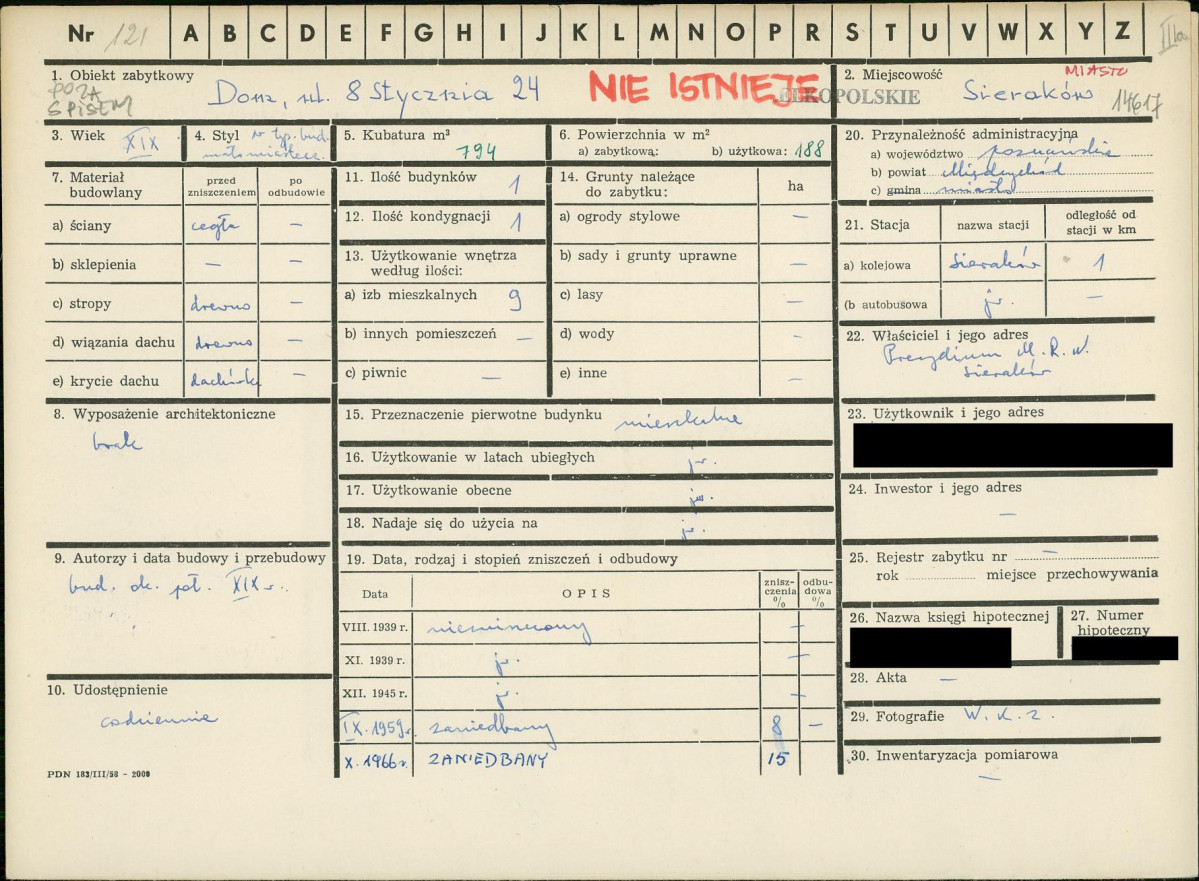 Nr 121 A B C D E F G H I J K L M N O P R S T U V W X Y Z IIIa
1. Obiekt zabytkowy
POZA
SPISEM
Dom, ul. 8 Stycznia 24
NIE ISTNIEJE
2. Miejscowość
MIASTO
Sieraków
14617
3. Wiek XIX
4. Styl w typ. bud.
małomiastecz.
5. Kubatura m³
794
6. Powierzchnia w m²
a) zabytkową: b) użytkowa: 188
20. Przynależność administracyjna
a) województwo poznańskie
b) powiat Międzychód
c) gmina miasto
7. Materiał budowlany
przed zniszczeniem
po odbudowie
a) ściany cegła —
b) sklepienia — —
c) stropy drewno —
d) wiązania dachu drewno —
e) krycie dachu dachówka —
11. Ilość budynków 1
12. Ilość kondygnacji 1
13. Użytkowanie wnętrza
według ilości:
a) izb mieszkalnych 9
b) innych pomieszczeń —
c) piwnic —
14. Grunty należące
do zabytku:
ha
a) ogrody stylowe —
b) sady i grunty uprawne —
c) lasy —
d) wody -
e) inne —
21. Stacja
nazwa stacji
odległość od
stacji w km
a) kolejowa Sieraków 1
(b autobusowa jw. —
22. Właściciel i jego adres
Prezydium M. R. N.
Sieraków
8. Wyposażenie architektoniczne
brak
15. Przeznaczenie pierwotne budynku mieszkalne
16. Użytkowanie w latach ubiegłych jw.
17. Użytkowanie obecne jw.
18. Nadaje się do użycia na jw.
23. Użytkownik i jego adres
24. Inwestor i jego adres
—
9. Autorzy i data budowy i przebudowy
bud. ok. poł. XIX w.
19. Data, rodzaj i stopień zniszczeń i odbudowy
Data OPIS znisz-
czenia
%
odbu-
dowa
%
VIII. 1939 r. niezniszczony —
XI. 1939 r. jw. —
XII. 1945 r. jw. —
IX. 1959 r. zaniedbany 8 —
X. 1966 r. ZANIEDBANY 15
25. Rejestr zabytku nr —
rok miejsce przechowywania
26. Nazwa księgi hipotecznej
27. Numer
hipoteczny
28. Akta —
29. Fotografie W. K. Z.
30. Inwentaryzacja pomiarowa
—
10. Udostępnienie
codziennie
PDN 183/III/58 - 2000